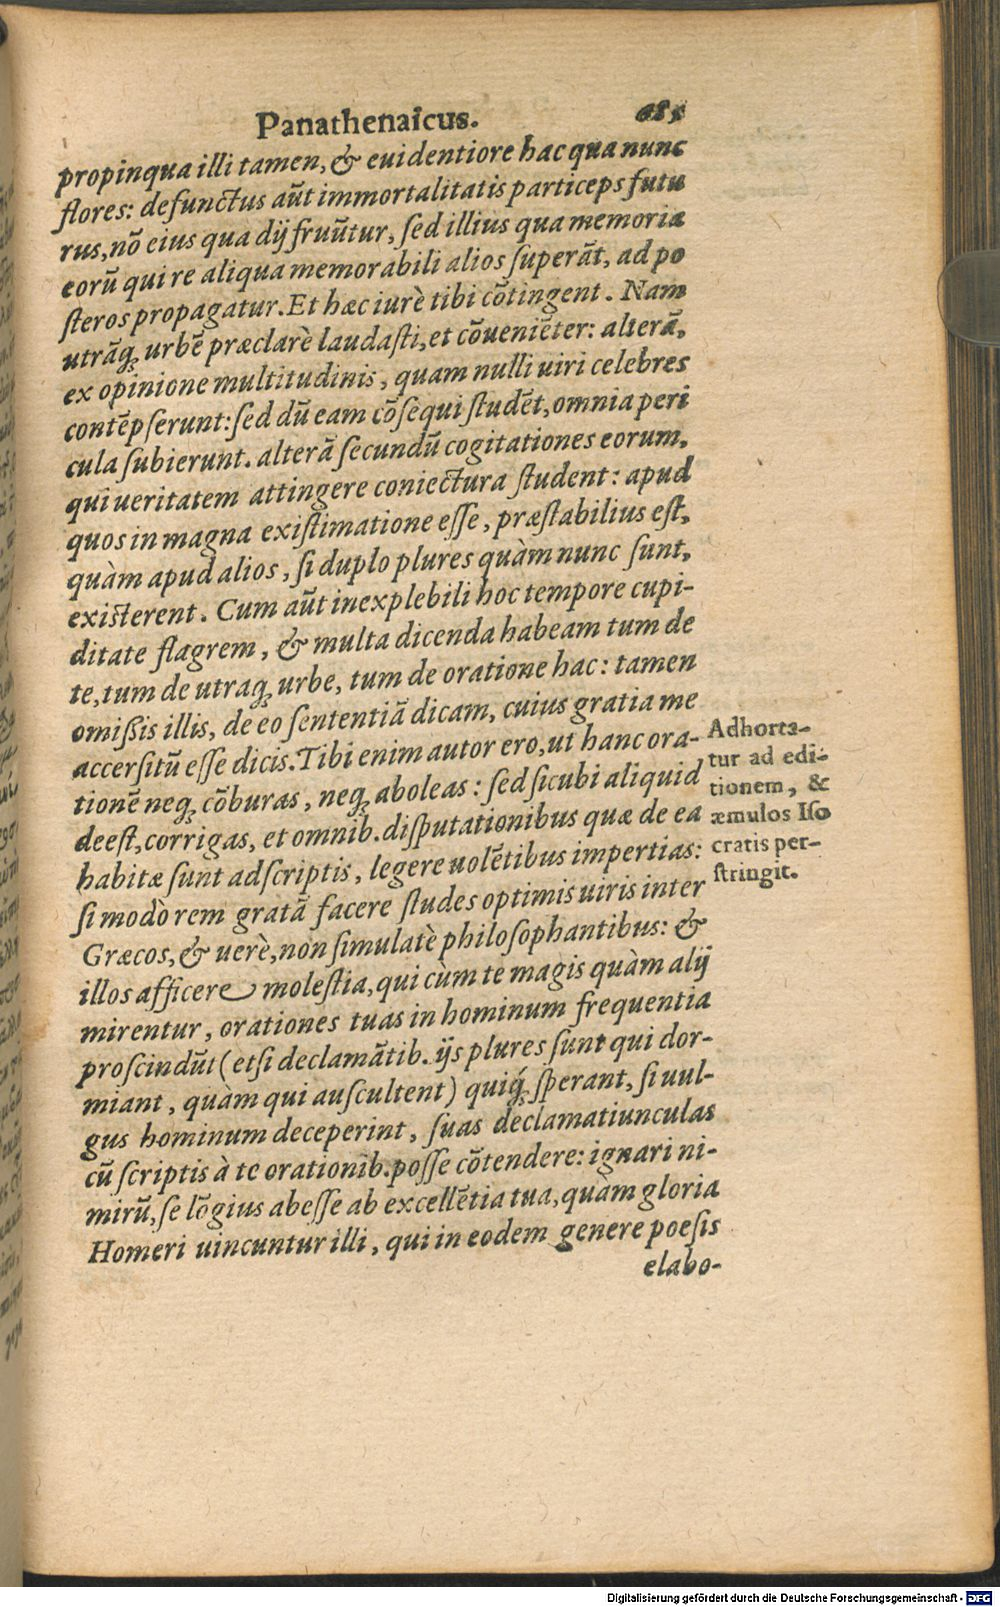 Panathenaicus.
propinqua illi tamen, & euidentiore hac qua nunc
flores: defunctus aūt immortalitatis particeps futu
rus, nō eius qua dij fruūtur, sed illius qua memoria
eorū qui re aliqua memorabili alios superāt, ad po
steros propagatur. Et hæc iurè tibi cōtingent. Nam
utrāq; urbē præclarè laudasti, et cōueniēter: alterā,
ex opinione multitudinis, quam nulli uiri celebres
contēpserunt: sed dū eam cōsequi studēt, omnia peri
cula subierunt. alterā secundū cogitationes eorum,
qui ueritatem attingere coniectura student: apud
quos in magna existimatione esse, præstabilius est,
quàm apud alios, si duplo plures quàm nunc sunt,
existerent. Cum aūt inexplebili hoc tempore cupi-
ditate flagrem, & multa dicenda habeam tum de
te, tum de utraq; urbe, tum de oratione hac: tamen
omißis illis, de eo sententiā dicam, cuius gratia me
accersitū esse dicis. Tibi enim autor ero, ut hanc ora-
tionē neq; cōburas, neq; aboleas: sed sicubi aliquid
deest, corrigas, et omnib. disputationibus quæ de ea
habitæ sunt adscriptis, legere uolētibus impertias:
si modò rem gratā facere studes optimis uiris inter
Græcos, & uerè, non simulatè philosophantibus: &
illos afficere molestia, qui cùm te magis quàm alij
mirentur, orationes tuas in hominum frequentia
proscindūt (etsi declamātib. ijs plures sunt qui dor-
miant, quàm qui auscultent) quiq́; sperant, si uul-
gus hominum deceperint, suas declamatiunculas
cū scriptis à te orationib. posse cōtendere: ignari ni-
mirū, se lōgius abesse ab excellētia tua, quàm gloria
Homeri uincuntur illi, qui in eodem genere poesis
elabo-
Adhorta-
tur ad edi-
tionem, &
æmulos Iso
cratis per-
stringit.
Digitalisierung gefördert durch die Deutsche Forschungsgemeinschaft - DFG